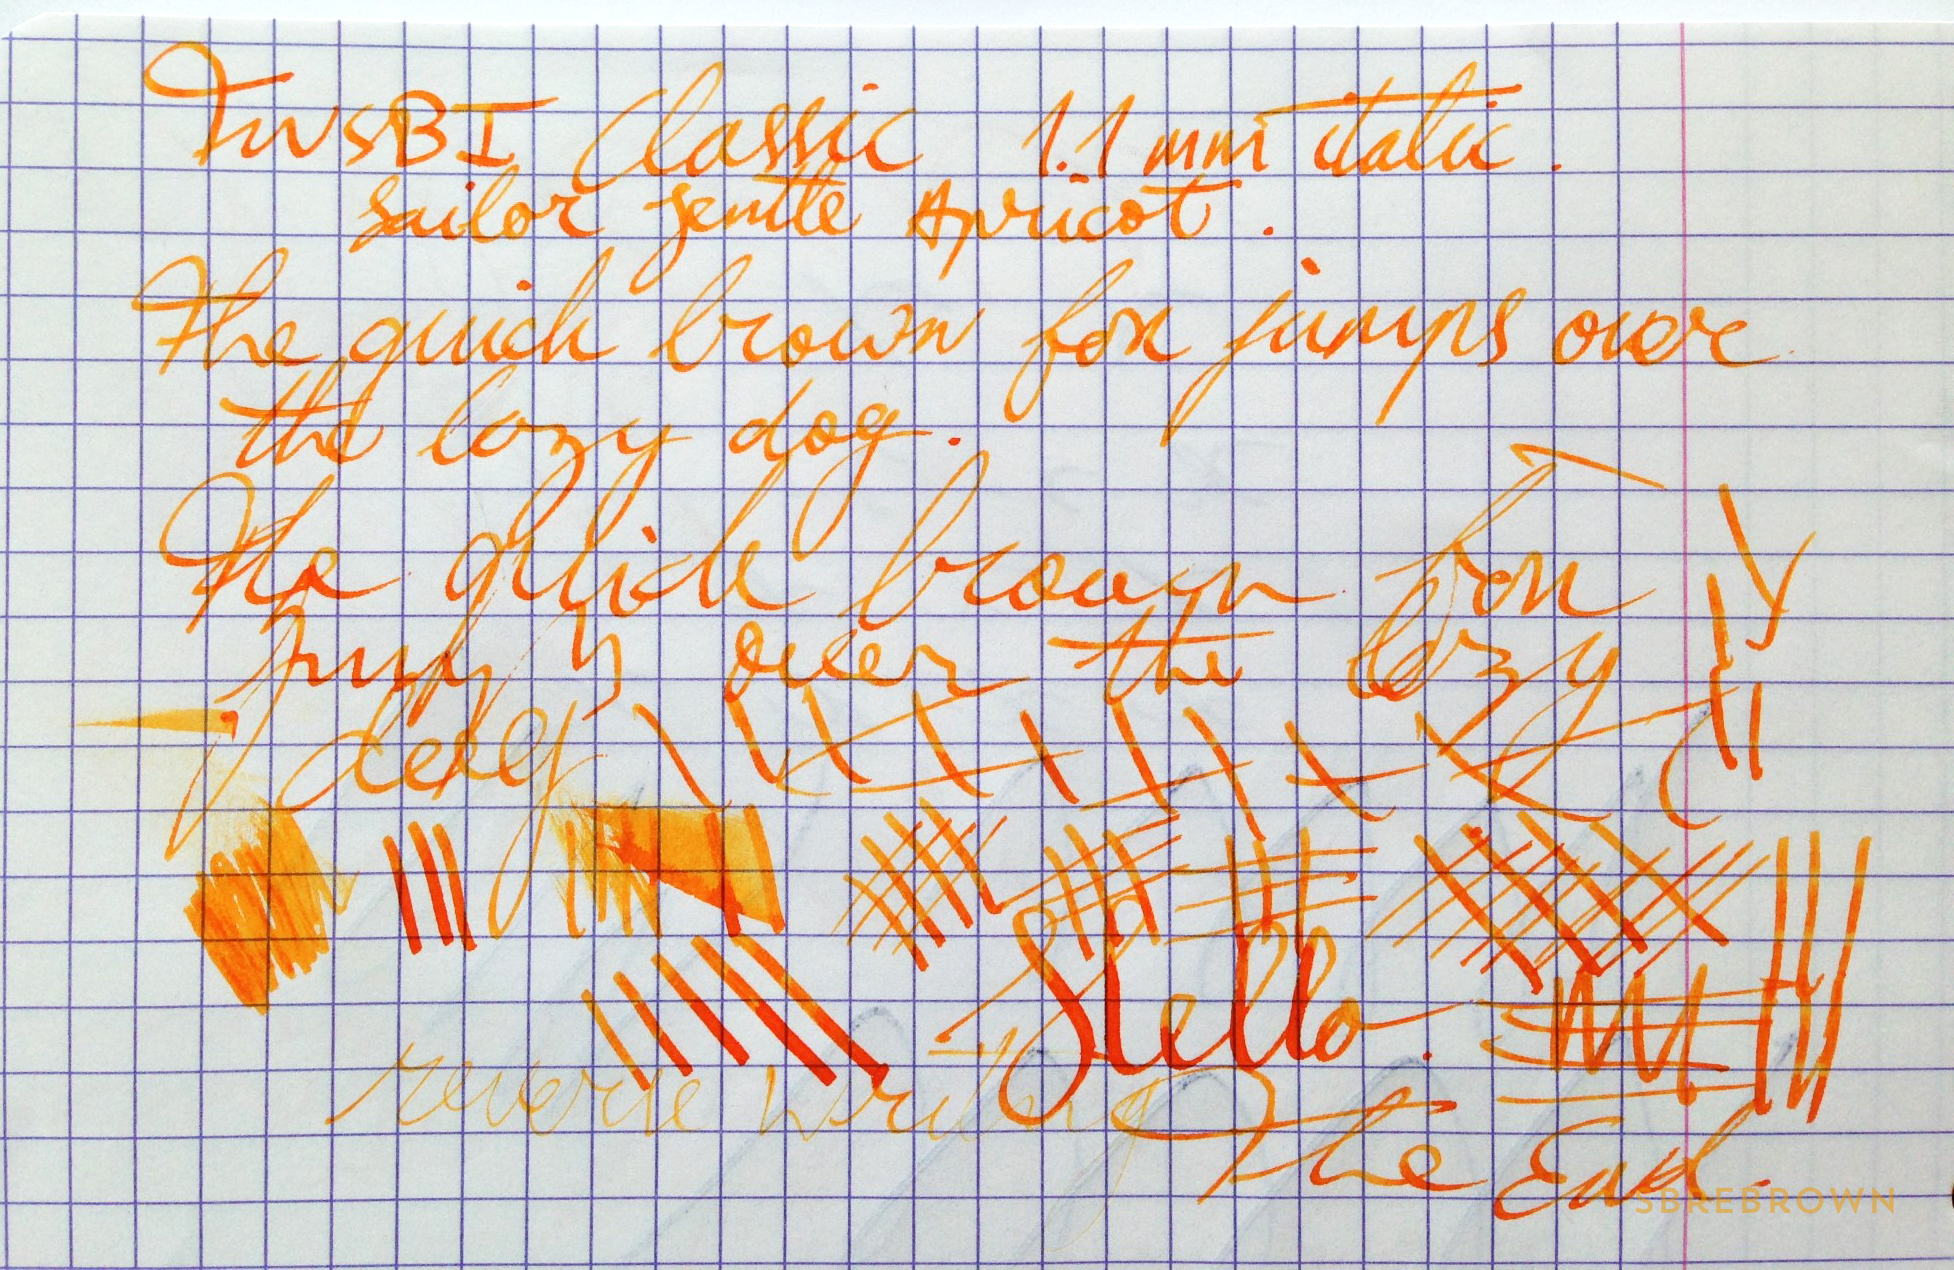 TWSBI Classic 1.1 mm italic.
Sailor Jentle Apricot.
The quick brown fox jumps over
the lazy dog.
The quick brown fox
jumps over the lazy
dog
Hello.
reverse writing
The End.
SBREBROWN